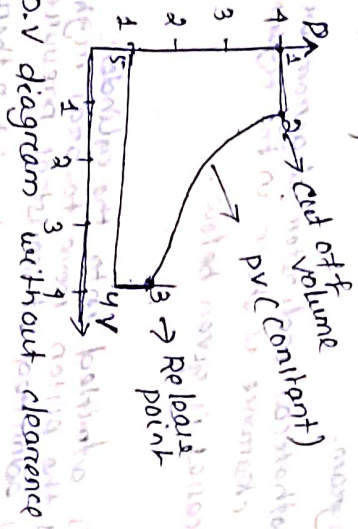 P
4
3
2
1
1
2
3
4
5
→ Cut off
volume
PV (Constant)
→ Release
point
1
2
3
4
V
P.V diagram without clearence